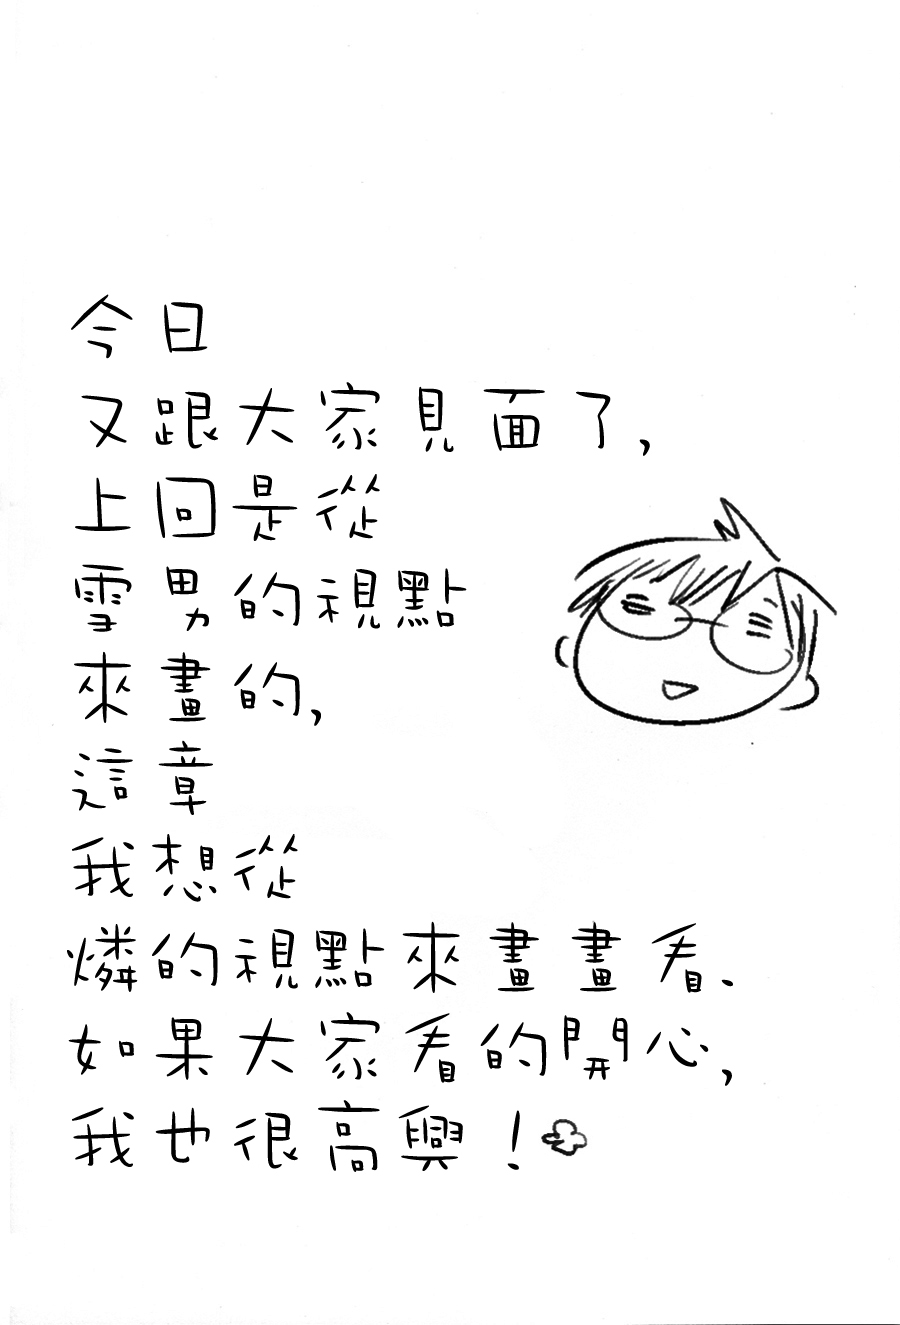 今日
又跟大家見面了,
上回是從
雪男的視點
來畫的,
這章
我想從
燐的視點來畫畫看.
如果大家看的開心,
我也很高興!